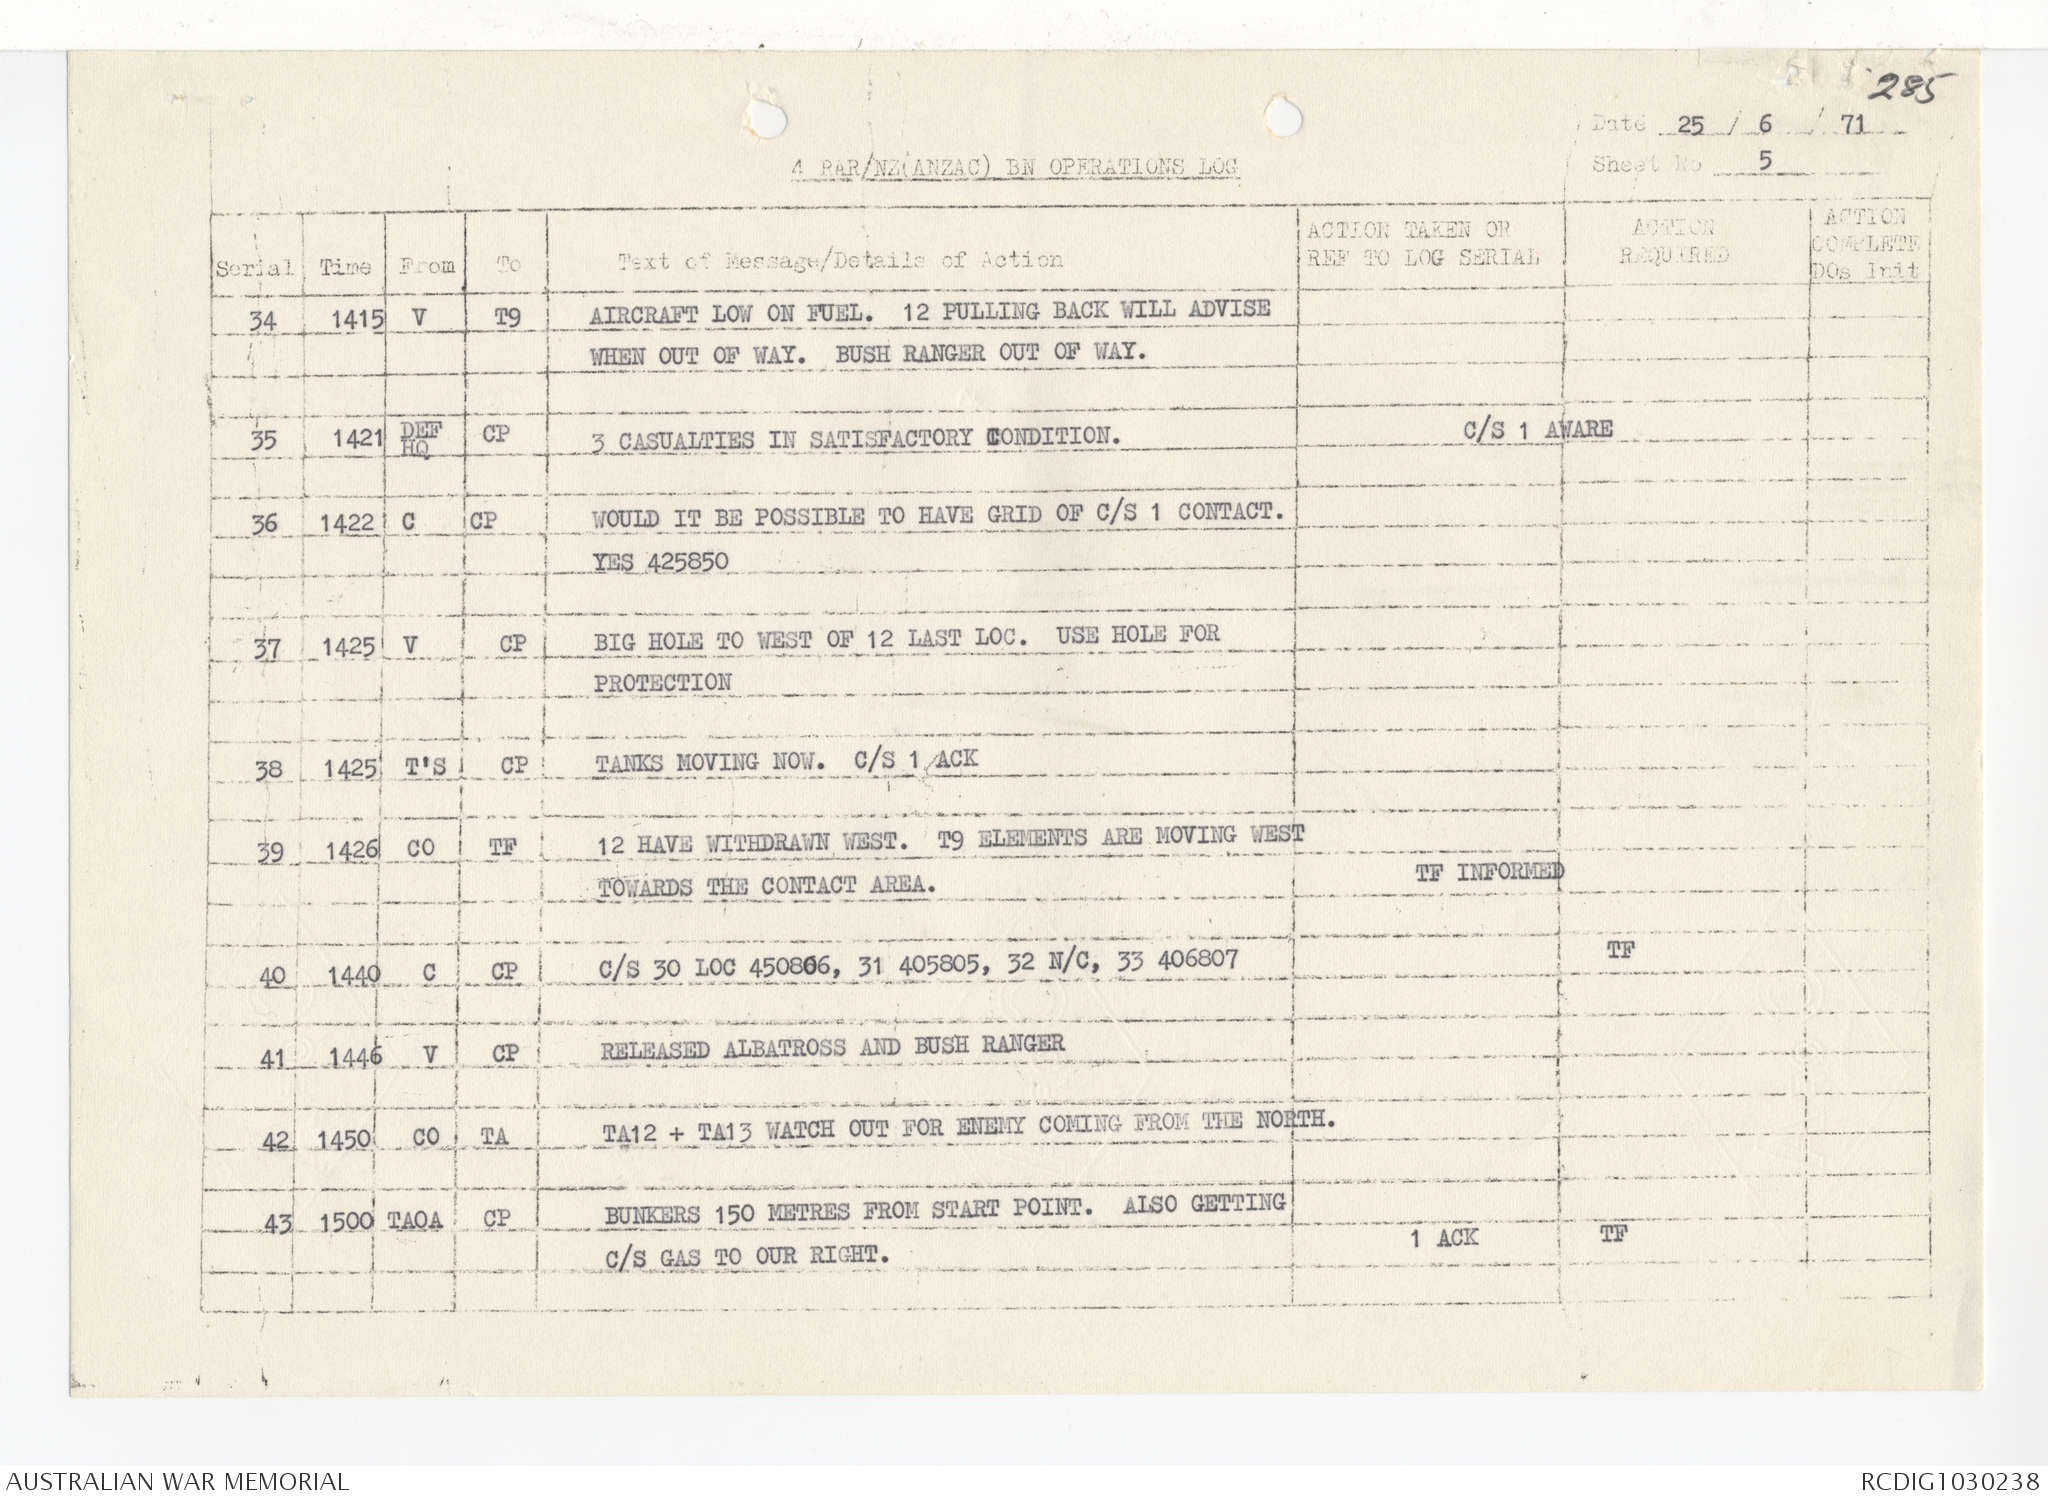 285
Date 25 / 6 / 71
Sheet No 5
4 RAR/NZ(ANZAC) BN OPERATIONS LOG
Serial Time From To Text of Message/Details of Action ACTION TAKEN OR REF TO LOG SERIAL ACTION REQUIRED ACTION COMPLETE DOs Init
34 1415 V T9 AIRCRAFT LOW ON FUEL. 12 PULLING BACK WILL ADVISE
WHEN OUT OF WAY. BUSH RANGER OUT OF WAY.
35 1421 DEF HQ CP 3 CASUALTIES IN SATISFACTORY CONDITION. C/S 1 AWARE
36 1422 C CP WOULD IT BE POSSIBLE TO HAVE GRID OF C/S 1 CONTACT.
YES 425850
37 1425 V CP BIG HOLE TO WEST OF 12 LAST LOC. USE HOLE FOR
PROTECTION
38 1425 T'S CP TANKS MOVING NOW. C/S 1 ACK
39 1426 CO TF 12 HAVE WITHDRAWN WEST. T9 ELEMENTS ARE MOVING WEST
TOWARDS THE CONTACT AREA. TF INFORMED
40 1440 C CP C/S 30 LOC 450806, 31 405805, 32 N/C, 33 406807 TF
41 1446 V CP RELEASED ALBATROSS AND BUSH RANGER
42 1450 CO TA TA12 + TA13 WATCH OUT FOR ENEMY COMING FROM THE NORTH.
43 1500 TAOA CP BUNKERS 150 METRES FROM START POINT. ALSO GETTING
C/S GAS TO OUR RIGHT. 1 ACK TF
AUSTRALIAN WAR MEMORIAL RCDIG1030238